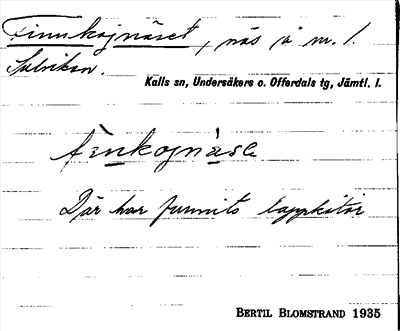 Finnkojnäset, näs i nr. 1.
Sulviken.
Kalls sn, Undersåkers o. Offerdals tg, Jämtl. l.
finkojnäsɛ
Där har funnits lappkåtor
BERTIL BLOMSTRAND 1935